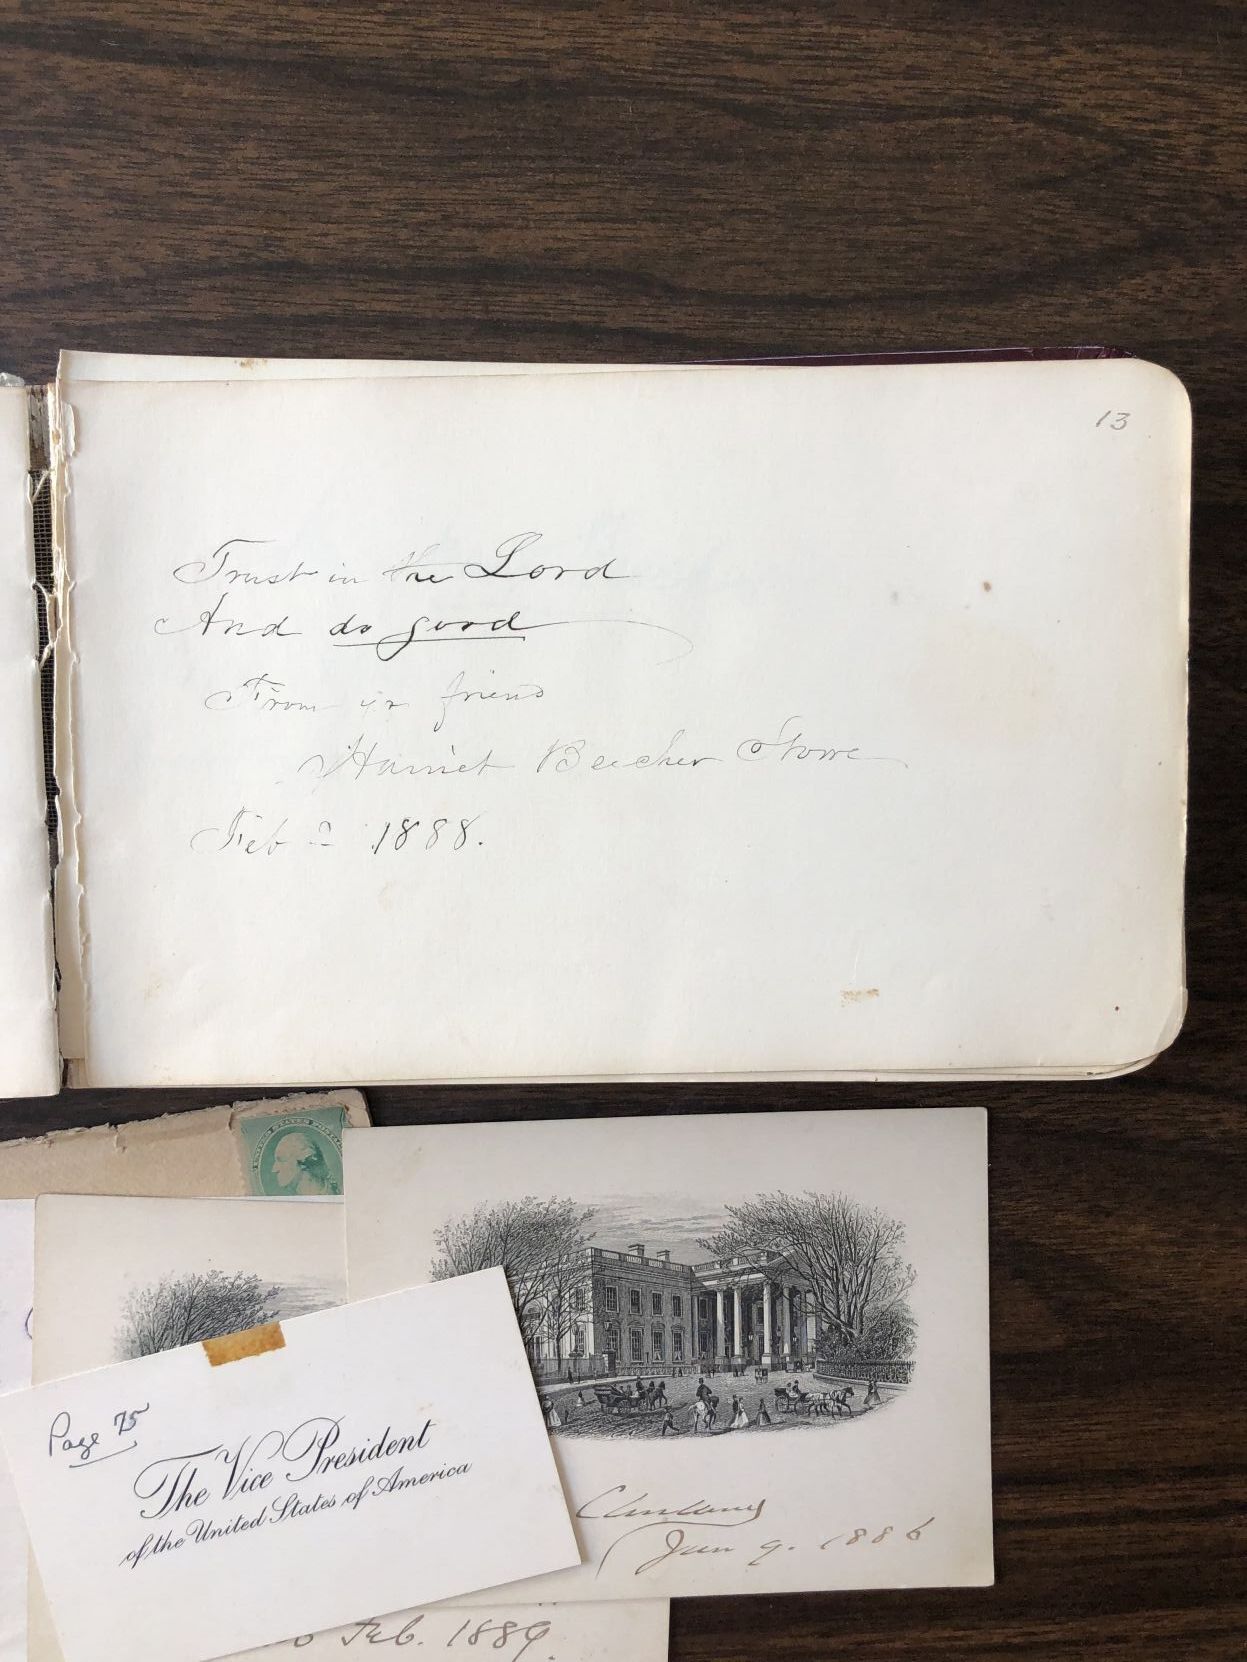 13
Trust in the Lord
And do good
From yr friend
Harriet Beecher Stowe
Feb 2 1888.
UNITED STATES POSTAGE
Page 75
The Vice President
of the United States of America
Jun 9. 1886
Feb. 1889.